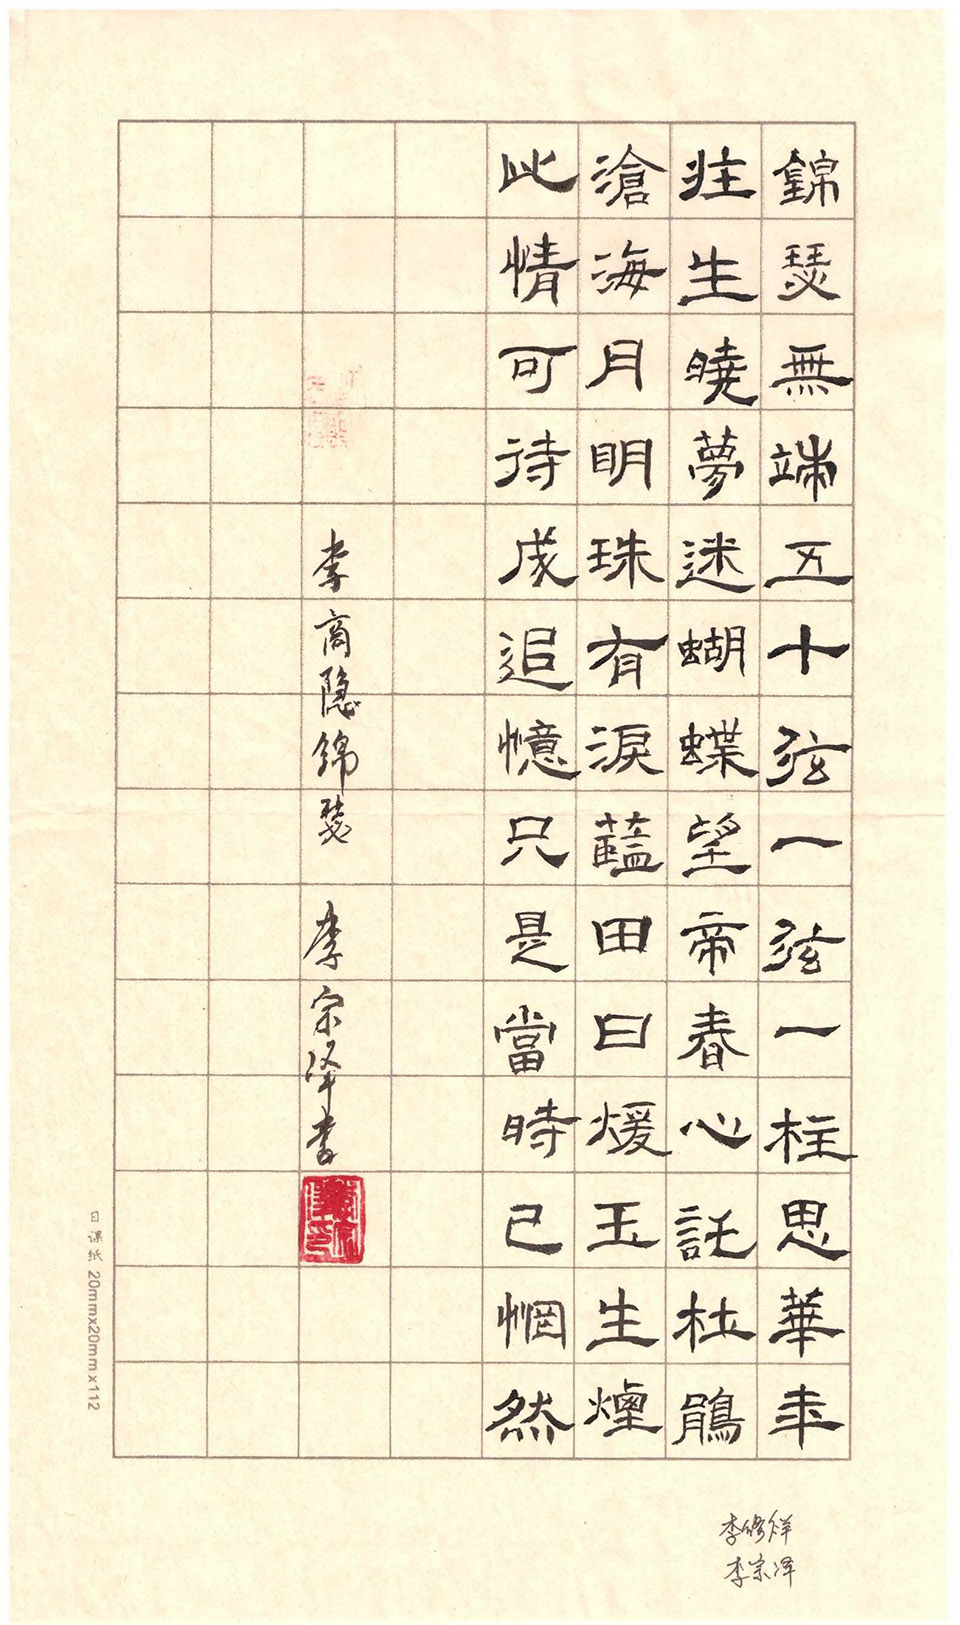 錦瑟無端五十弦一弦一柱思華年
莊生曉夢迷蝴蝶望帝春心託杜鵑
滄海月明珠有淚藍田日煖玉生煙
此情可待成追憶只是當時已惘然
李商隐錦瑟 李宗泽书
日课纸 20mmx20mmx112
李修祥
李宗泽